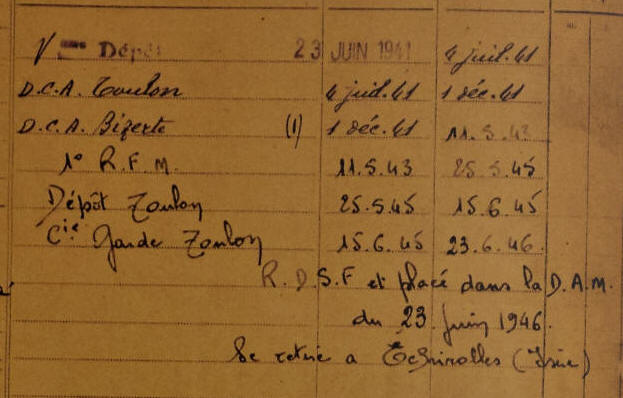 V Dépôt 23 JUIN 1941 4 juil. 41
D.C.A. Toulon 4 juil. 41 1 déc. 41
D.C.A. Bizerte (1) 1 déc. 41 11.5.43
1º R.F.M. 11.5.43 25.5.45
Dépôt Toulon 25.5.45 15.6.45
Cie Garde Toulon 15.6.45 23.6.46.
R.D.S.F et placé dans la D.A.M.
du 23 Juin 1946.
Se retire a Echirolles (Isère)